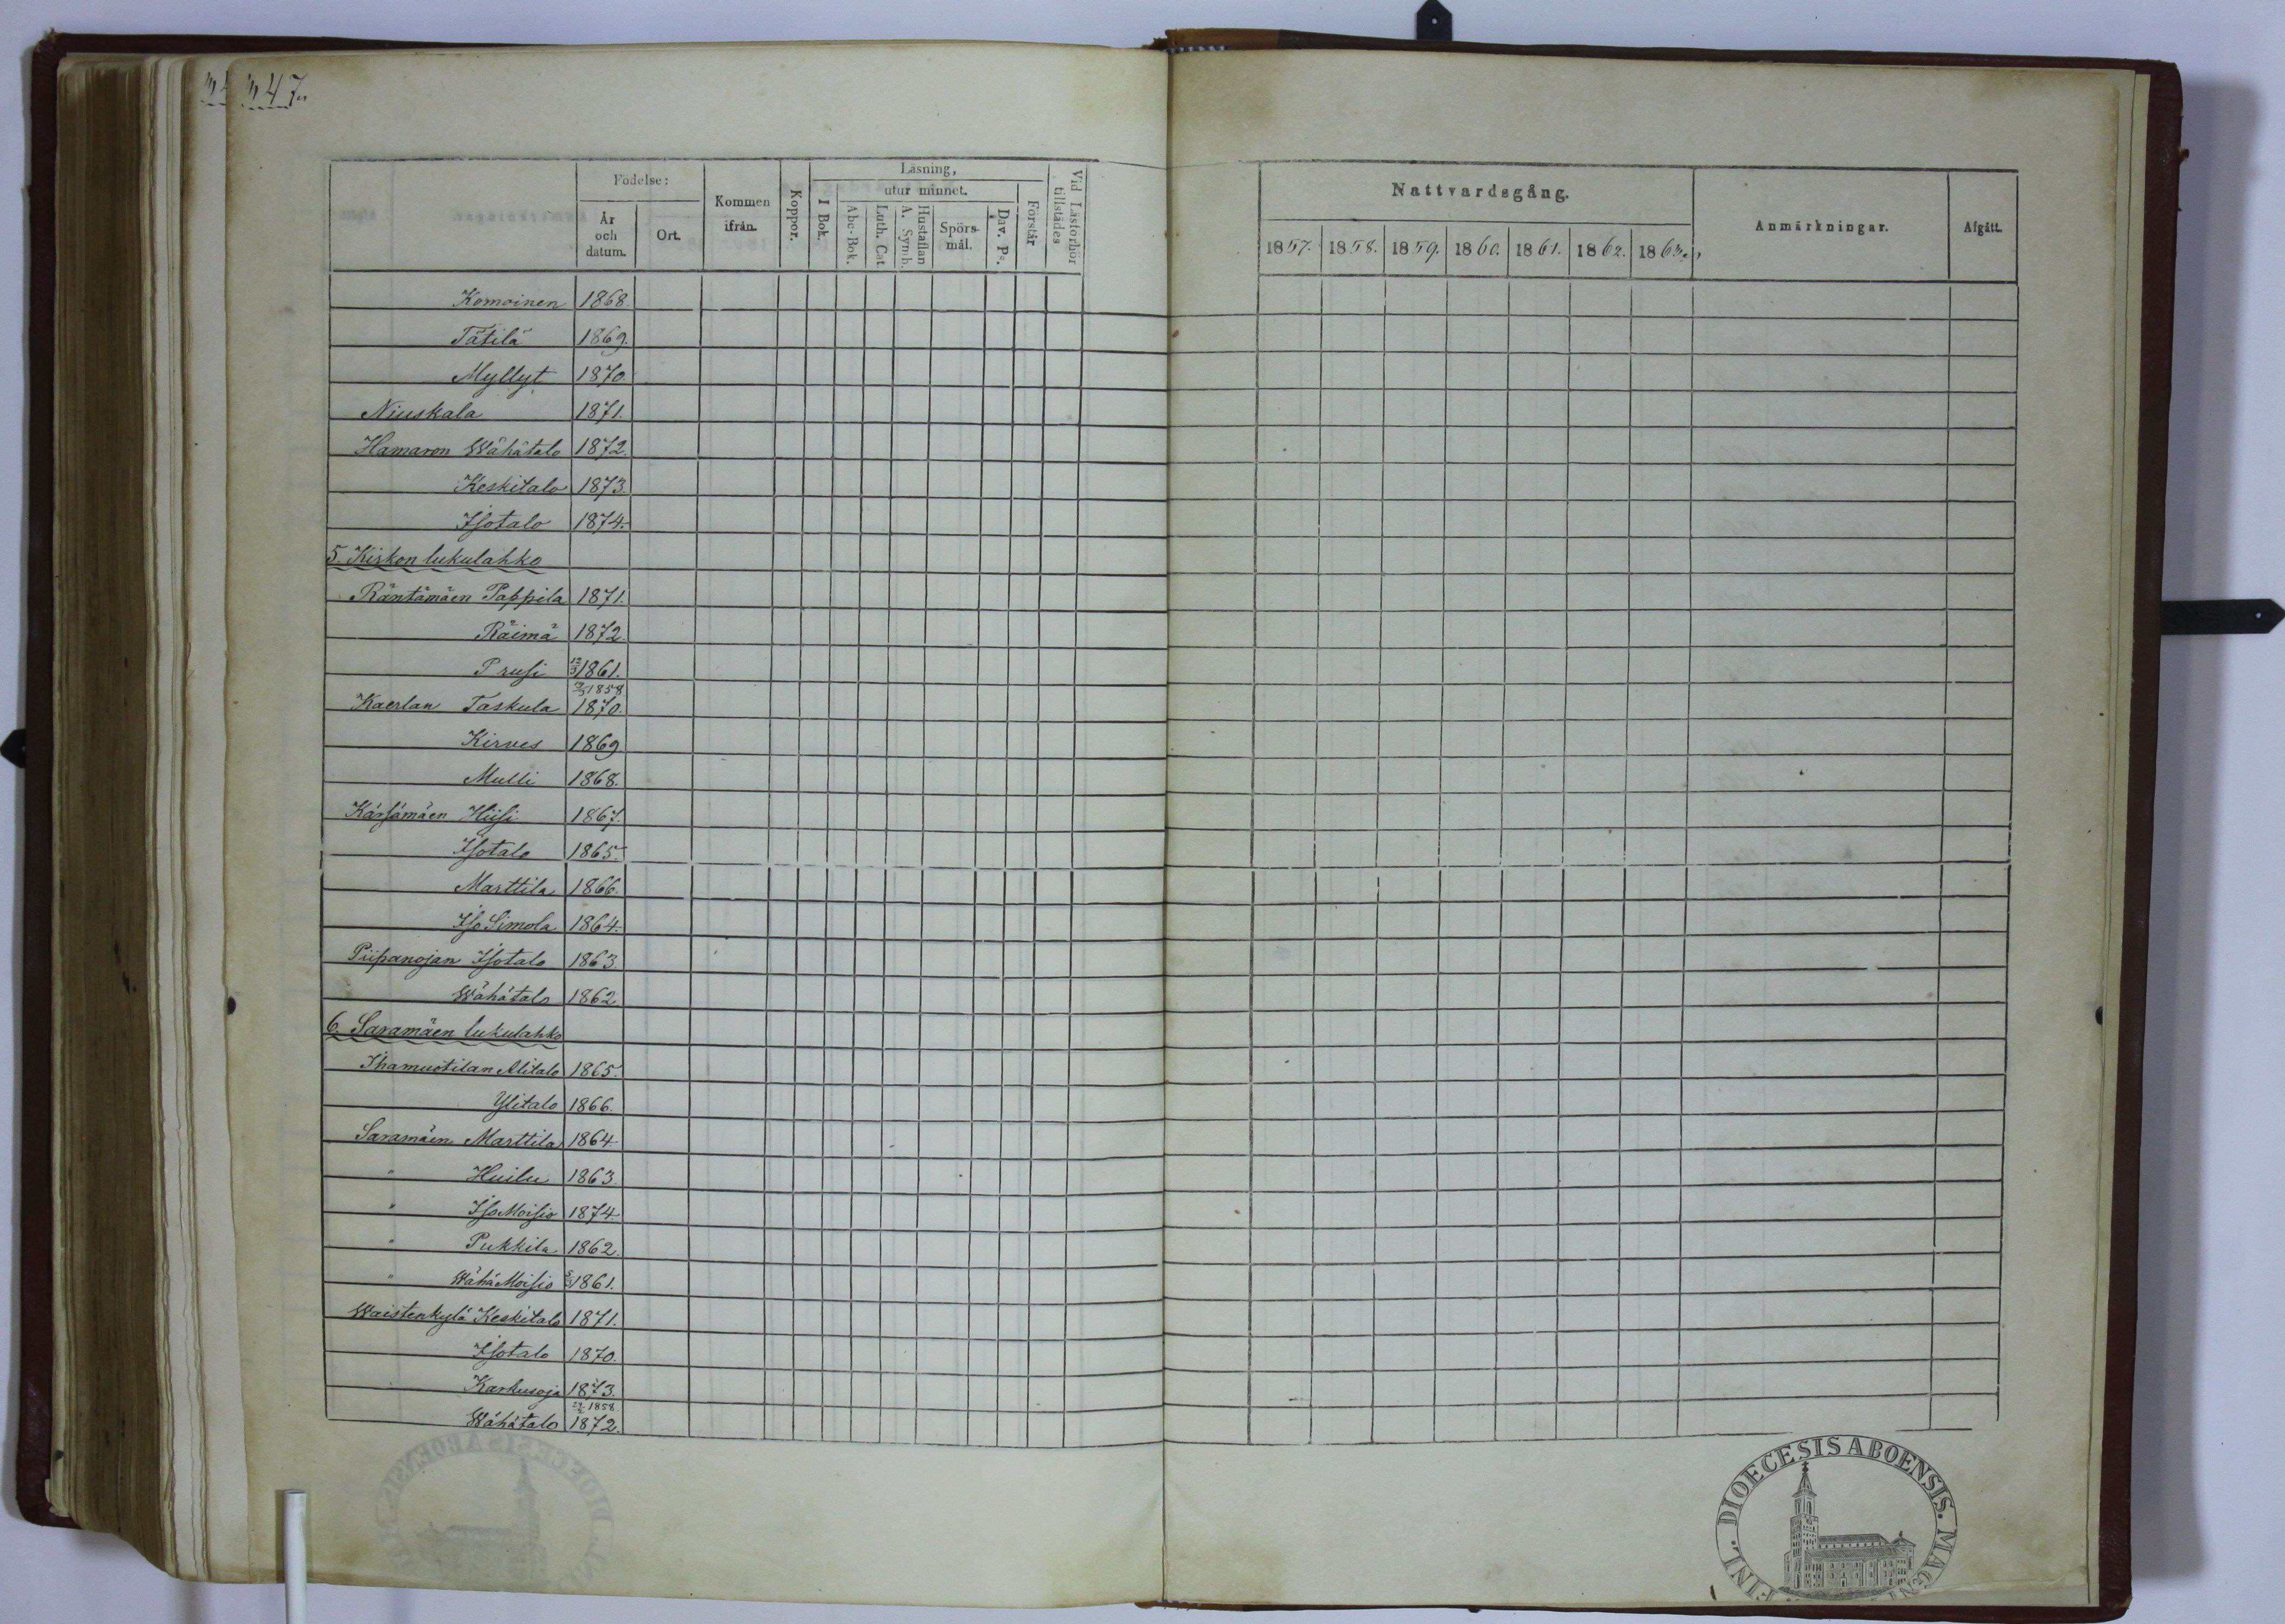 347.
Födelse:
År och datum.
Ort.
Kommen ifrån.
Koppor.
Läsning,
utur minnet.
I Bok.
Abc-Bok.
Luth. Cat.
Hustaflan A. Symb.
Spörsmål.
Dav. Ps.
Förstår
Vid Läsförhör tillstädes
Nattvardsgång.
1857. 1858. 1859. 1860. 1861. 1862. 1863.
Anmärkningar.
Afgått.
Komoinen 1868.
Tätilä 1869.
Myllyt 1870.
Niuskala 1871.
Hamaron Wähätalo 1872.
Keskitalo 1873.
Isotalo 1874.
5. Kirkon lukulahko
Räntämäen Pappila 1871.
Räimä 1872.
Prusi 1861.
1858
Kaerlan Taskula 1870.
Kirves 1869
Mulli 1868.
Kärsämäen Hiisi 1867.
Isotalo 1865.
Marttila 1866.
Iso Simola 1864.
Piipanojan Isotalo 1863
Wähätalo 1862
6. Saramäen lukulahko
Ihamuotilan Alitalo 1865.
Ylitalo 1866.
Saramäen Marttila 1864
" Huilu 1863.
" Iso Moisio 1874
" Pukkila 1862.
" Wähä Moisio 1861.
Waistenkylä Keskitalo 1871.
Isotalo 1870.
Karhusoja 1873.
1858.
Wähätalo 1872.
FINL. DIOECESIS ABOENSIS. MAGN